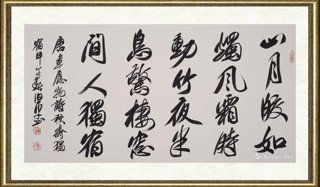 山月皎如
燭風霜時
動竹夜半
鳥驚棲窗
間人獨宿
唐韋應物詩秋齋獨
宿甲午